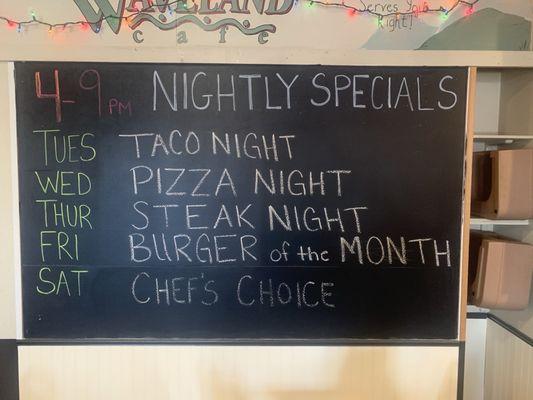 WAVELAND
cafe
Serves You
Right!
4-9 PM NIGHTLY SPECIALS
TUES TACO NIGHT
WED PIZZA NIGHT
THUR STEAK NIGHT
FRI BURGER of the MONTH
SAT CHEF'S CHOICE